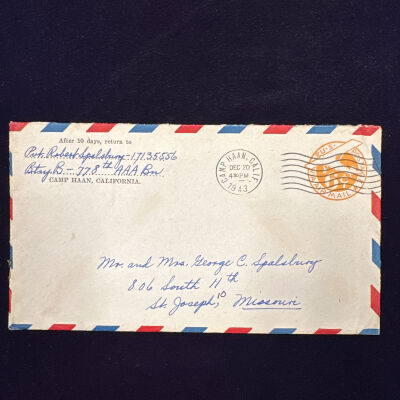 After 10 days, return to
Pvt. Robert Spalsbury-17135556
Btry. B — 778th AAA Bn.
CAMP HAAN, CALIFORNIA.
CAMP HAAN, CALIF.
DEC 20
4 30 PM
1943
AIR MAIL
Mr. and Mrs. George C. Spalsbury
806 South 11th
St. Joseph, 10
Missouri